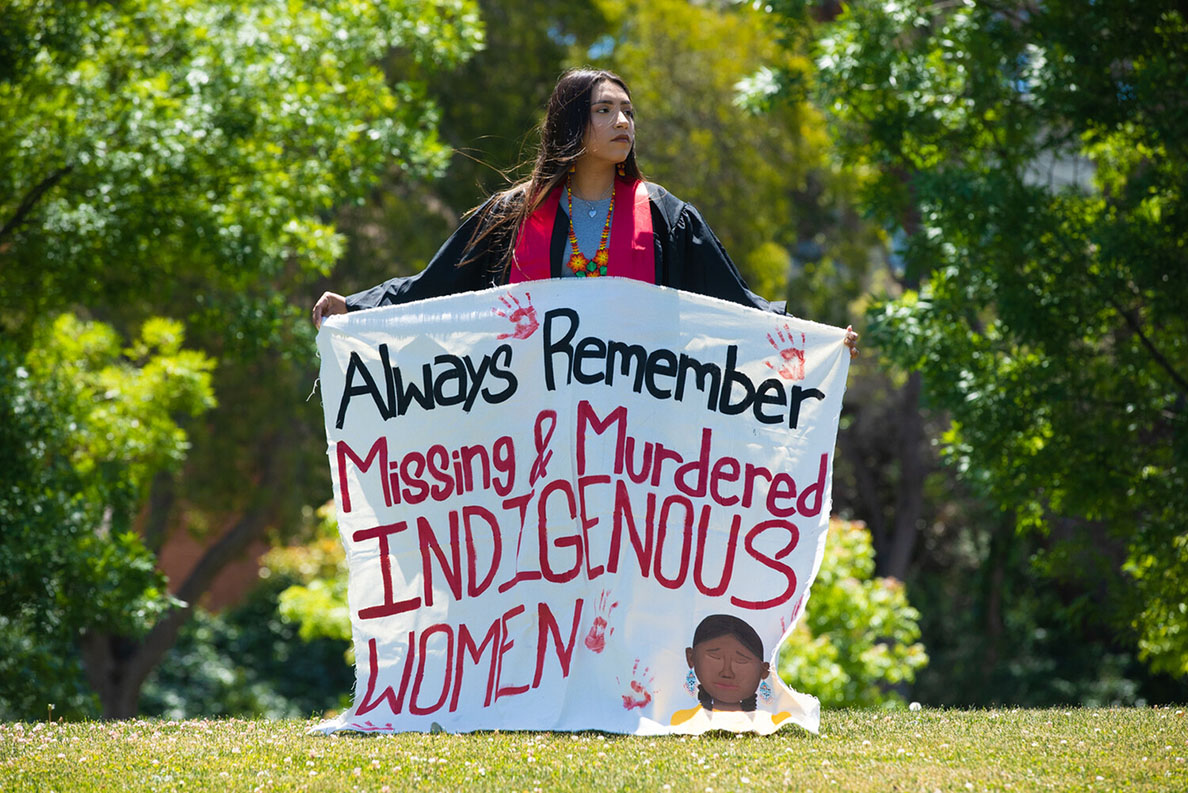 Always Remember
Missing & Murdered
INDIGENOUS
WOMEN